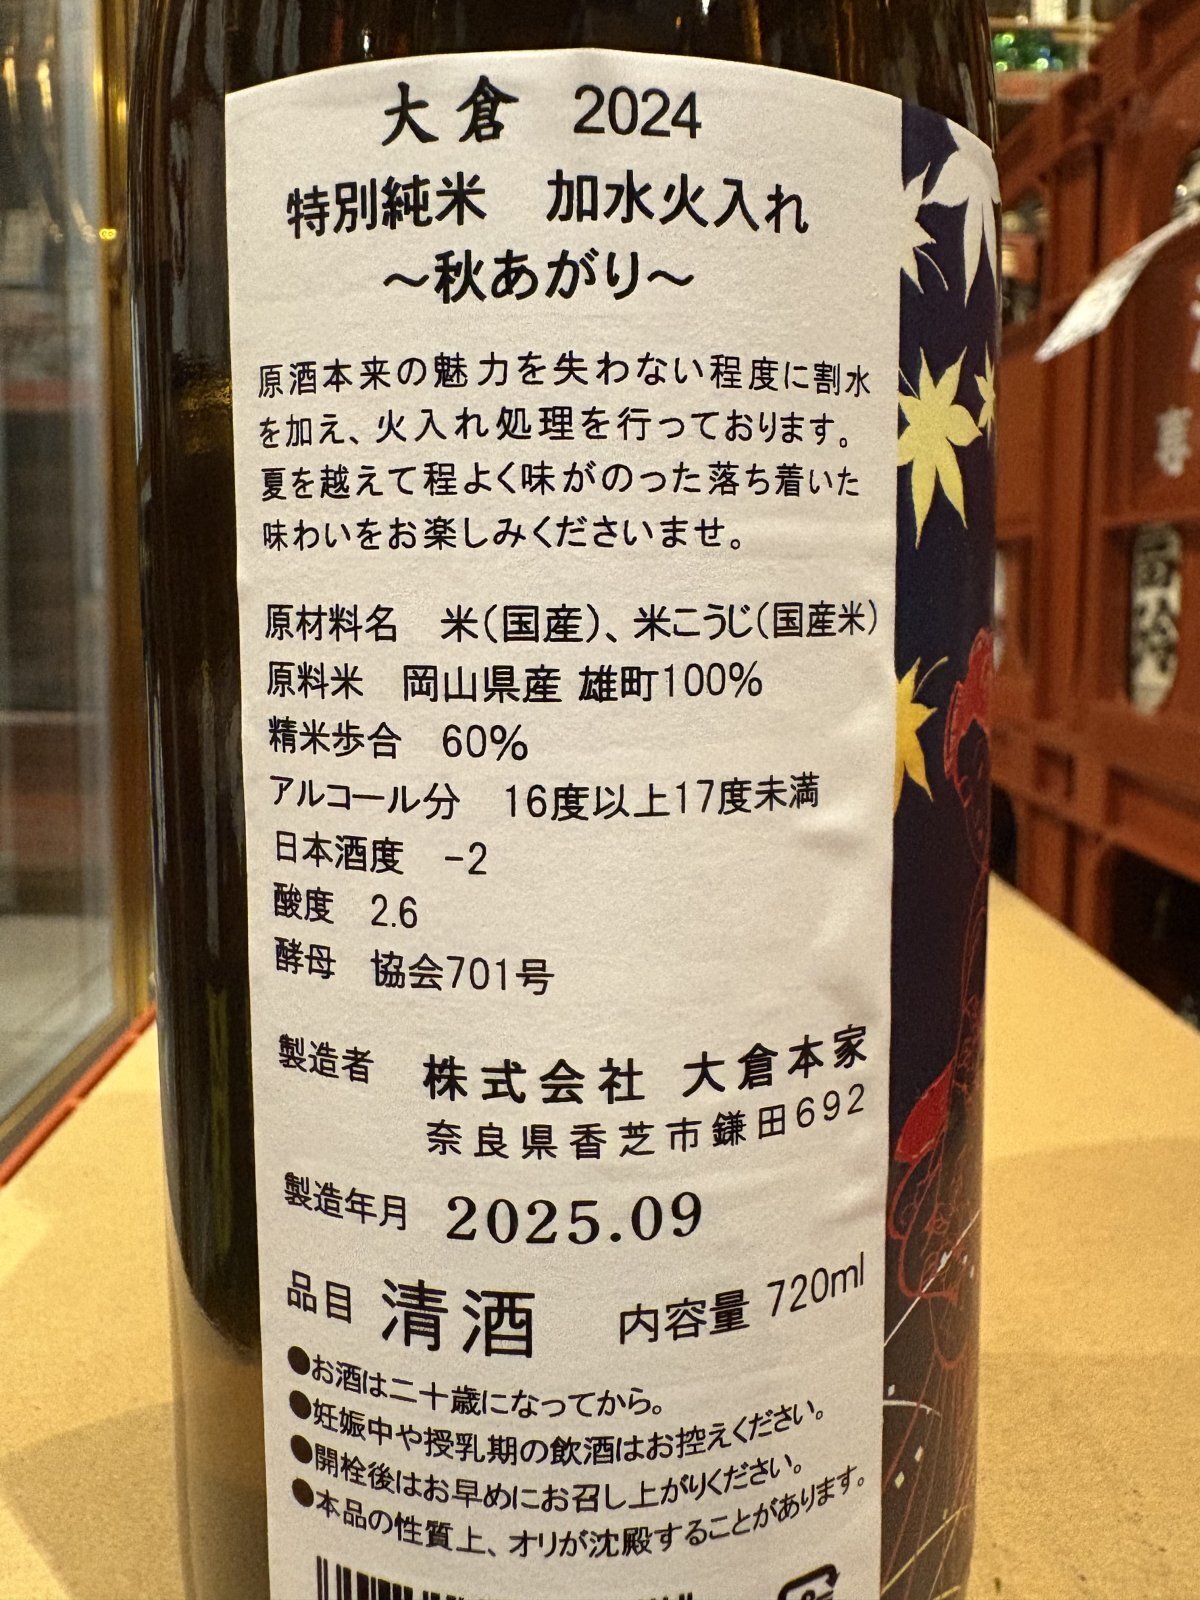 大倉 2024
特別純米 加水火入れ
～秋あがり～
原酒本来の魅力を失わない程度に割水
を加え、火入れ処理を行っております。
夏を越えて程よく味がのった落ち着いた
味わいをお楽しみくださいませ。
原材料名 米(国産)、米こうじ(国産米)
原料米 岡山県産 雄町100%
精米歩合 60%
アルコール分 16度以上17度未満
日本酒度 -2
酸度 2.6
酵母 協会701号
製造者 株式会社 大倉本家
奈良県香芝市鎌田692
製造年月 2025.09
品目 清酒 内容量 720ml
●お酒は二十歳になってから。
●妊娠中や授乳期の飲酒はお控えください。
●開栓後はお早めにお召し上がりください。
●本品の性質上、オリが沈殿することがあります。